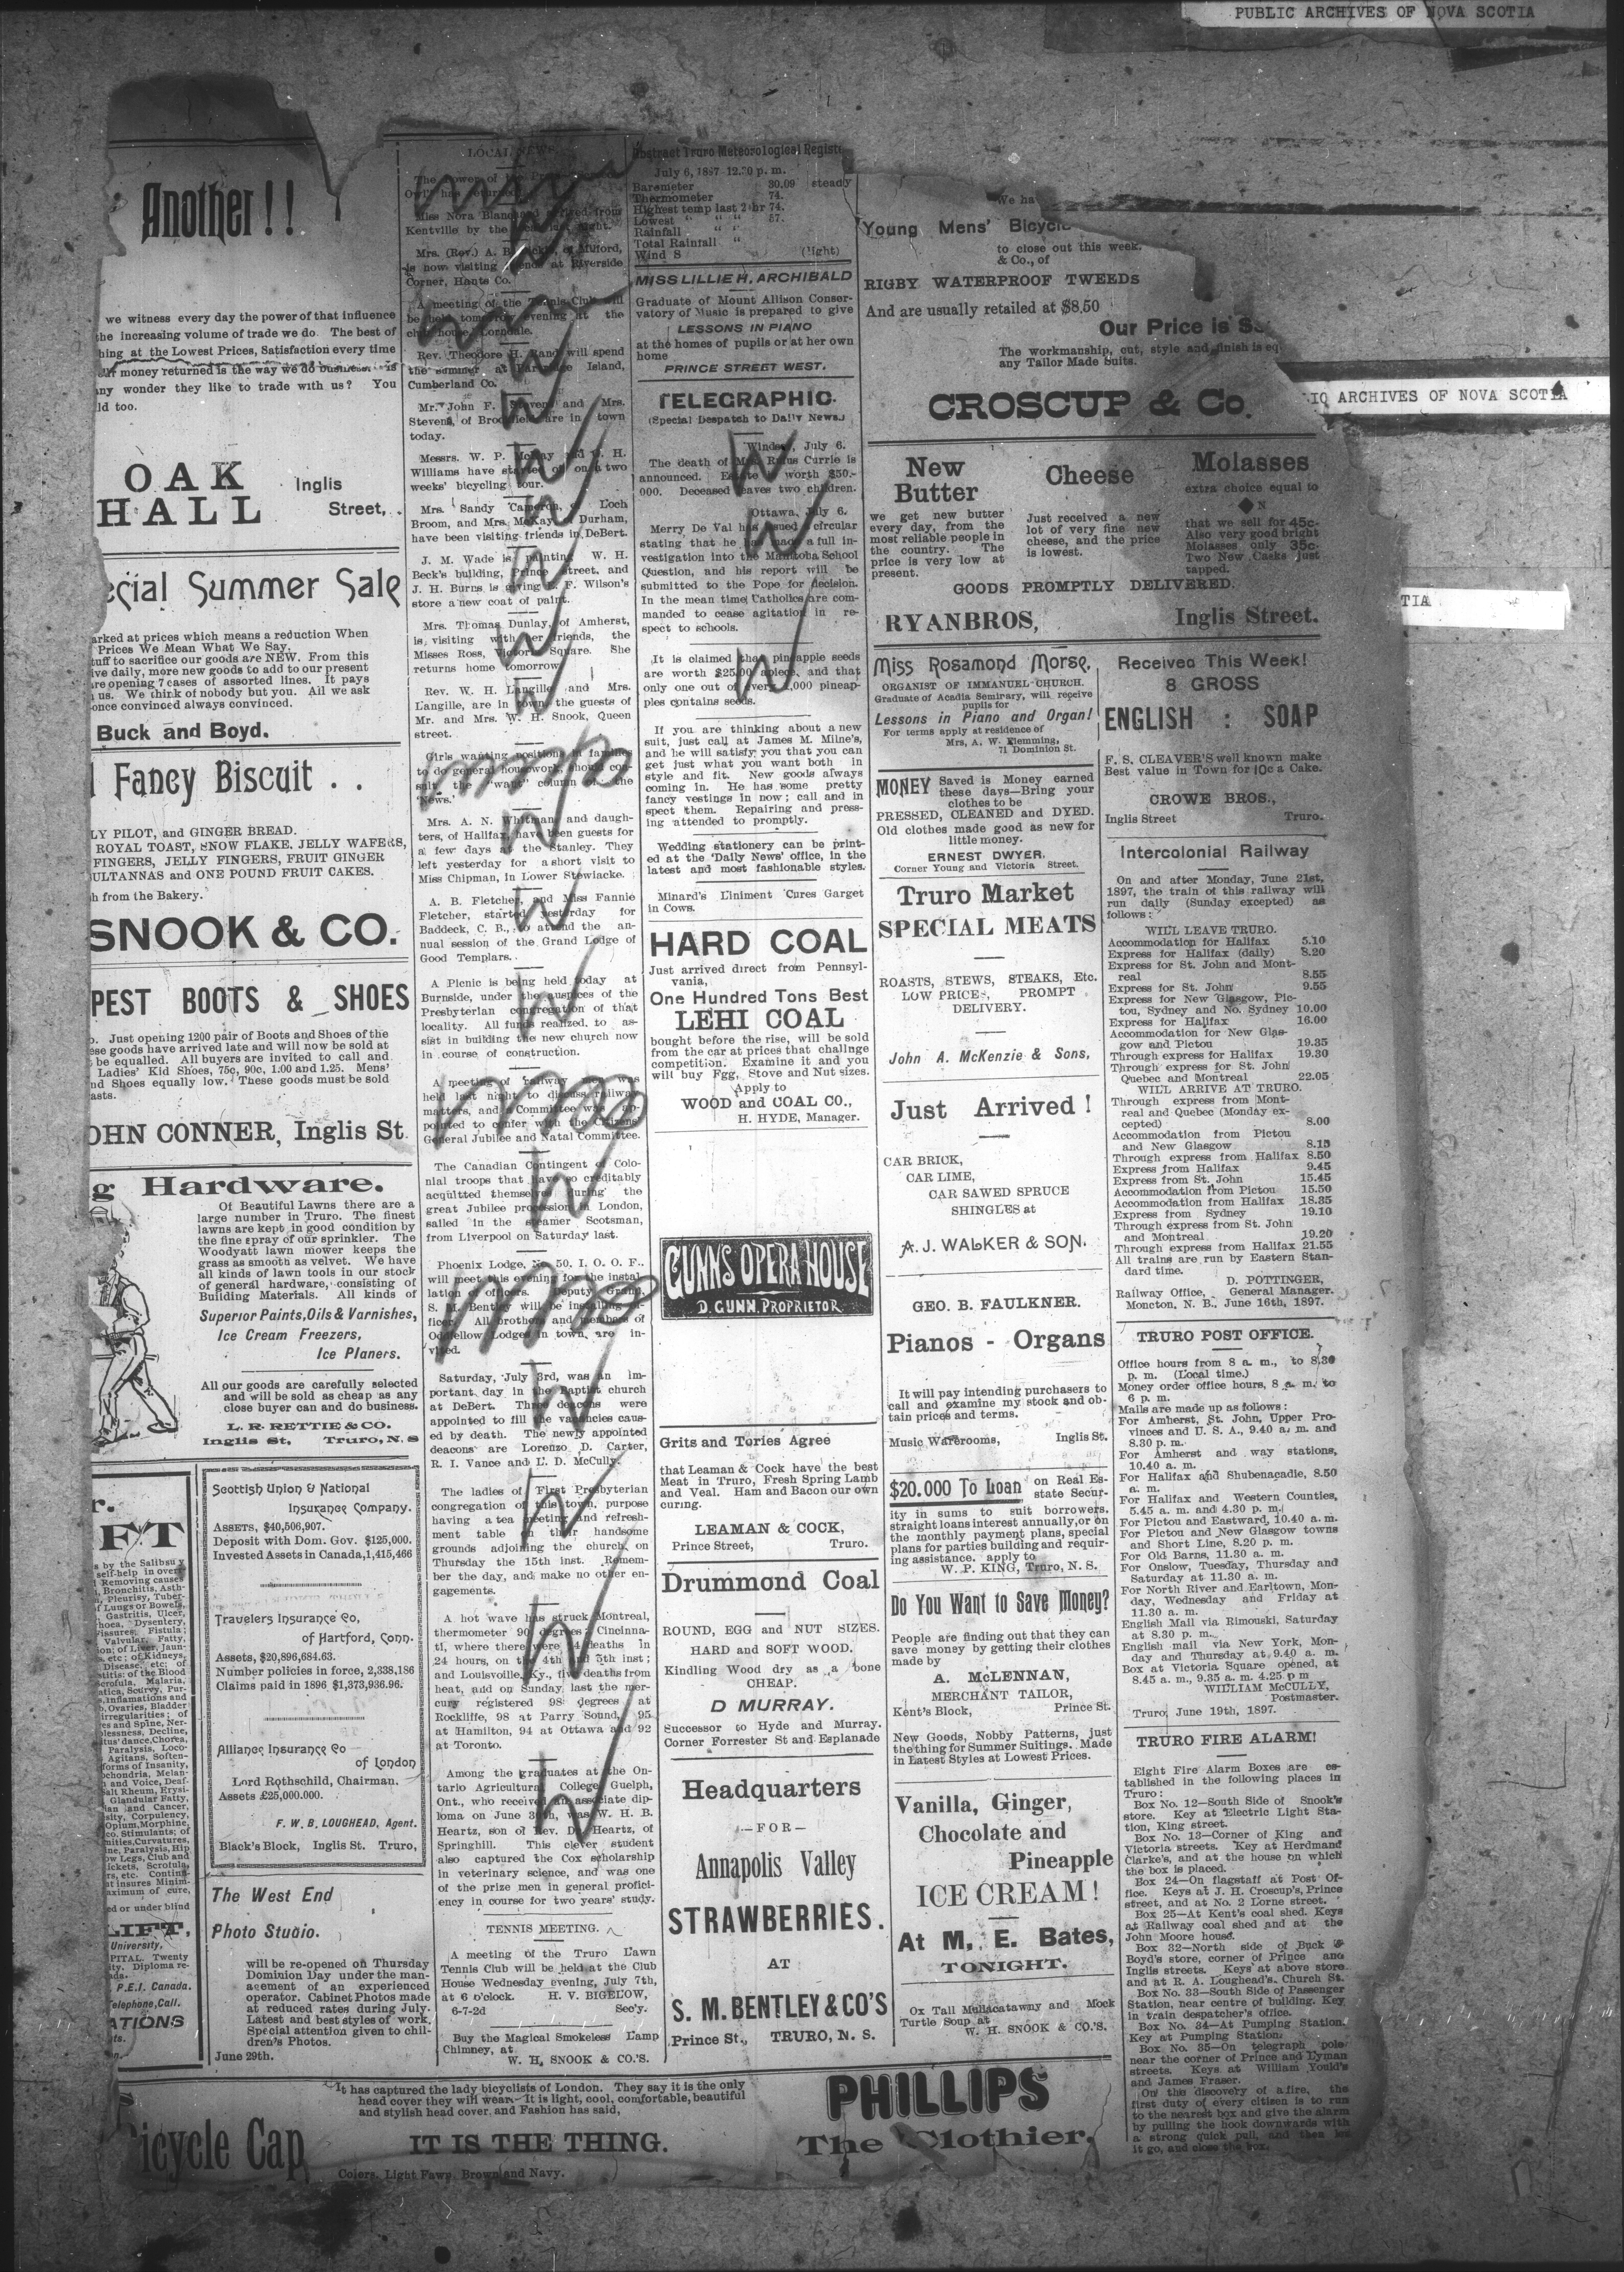 PUBLIC ARCHIVES OF NOVA SCOTIA
Another!!
we witness every day the power of that influence
the increasing volume of trade we do. The best of
hing at the Lowest Prices, Satisfaction every time
money returned is the way we do business.
any wonder they like to trade with us? You
ld too.
OAK
HALL
Inglis
Street,
ecial Summer Sale
arked at prices which means a reduction When
Prices We Mean What We Say.
tuff to sacrifice our goods are NEW. From this
ive daily, more new goods to add to our present
are opening 7 cases of assorted lines. It pays
us. We think of nobody but you. All we ask
once convinced always convinced.
Buck and Boyd.
Fancy Biscuit . .
LY PILOT, and GINGER BREAD.
ROYAL TOAST, SNOW FLAKE. JELLY WAFERS,
FINGERS, JELLY FINGERS, FRUIT GINGER
ULTANNAS and ONE POUND FRUIT CAKES.
h from the Bakery.
SNOOK & CO.
PEST BOOTS & SHOES
Just opening 1200 pair of Boots and Shoes of the
ese goods have arrived late and will now be sold at
be equalled. All buyers are invited to call and
Ladies' Kid Shoes, 75c, 90c, 1.00 and 1.25. Mens'
nd Shoes equally low. These goods must be sold
asts.
OHN CONNER, Inglis St.
g Hardware.
Of Beautiful Lawns there are a
large number in Truro. The finest
lawns are kept in good condition by
the fine spray of our sprinkler. The
Woodyatt lawn mower keeps the
grass as smooth as velvet. We have
all kinds of lawn tools in our stock
of general hardware, consisting of
Building Materials. All kinds of
Superior Paints, Oils & Varnishes,
Ice Cream Freezers,
Ice Planers.
All our goods are carefully selected
and will be sold as cheap as any
close buyer can and do business.
L. R. RETTIE & CO.
Inglis St, Truro, N. S
Scottish Union & National
Insurance Company.
ASSETS, $40,506,907.
Deposit with Dom. Gov. $125,000.
Invested Assets in Canada, 1,415,466
Travelers Insurance Co,
of Hartford, Conn.
Assets, $20,896,684.63.
Number policies in force, 2,338,186
Claims paid in 1896 $1,373,936.96.
Alliance Insurance Co
of London
Lord Rothschild, Chairman.
Assets £25,000.000.
F. W. B. LOUGHEAD, Agent.
Black's Block, Inglis St. Truro,
The West End
Photo Studio.
will be re-opened on Thursday
Dominion Day under the man-
agement of an experienced
operator. Cabinet Photos made
at reduced rates during July.
Latest and best styles of work.
Special attention given to chil-
dren's Photos.
June 29th.
LOCAL NEWS.
Miss Nora Blanchard arrived from
Kentville by the
Mrs. (Rev.) A. B. Dickie, of Milford,
is now visiting friends at Riverside
Corner, Hants Co.
A meeting of the Club will
be held tomorrow evening at the
club house,
Rev. Theodore H. Rand will spend
the summer at Partridge Island,
Cumberland Co.
Mr. John F. Stevens and Mrs.
Stevens, of Brookfield are in town
today.
Messrs. W. P. McKay and H.
Williams have started off on a two
weeks' bicycling tour.
Mrs. Sandy Cameron, of Loch
Broom, and Mrs. McKay, Durham,
have been visiting friends in DeBert.
J. M. Wade is painting W. H.
Beck's building, Prince street, and
J. H. Burns is giving F. Wilson's
store a new coat of paint.
Mrs. Thomas Dunlay, of Amherst,
is visiting with her friends, the
Misses Ross, Victoria Square. She
returns home tomorrow.
Rev. W. H. Langille and Mrs.
Langille, are in town, the guests of
Mr. and Mrs. W. H. Snook, Queen
street.
Girls wanting positions in families
to do general housework, should con-
sult the "want" column of the
'News.'
Mrs. A. N. Whitman and daugh-
ters, of Halifax, have been guests for
a few days at the Stanley. They
left yesterday for a short visit to
Miss Chipman, in Lower Stewiacke.
A. B. Fletcher, and Miss Fannie
Fletcher, started yesterday for
Baddeck, C. B., to attend the an-
nual session of the Grand Lodge of
Good Templars.
A Picnic is being held today at
Burnside, under the auspices of the
Presbyterian congregation of that
locality. All funds realized, to as-
sist in building the new church now
in course of construction.
A meeting of railway men was
held last night to discuss railway
matters, and a Committee was ap-
pointed to confer with the Citizens
General Jubilee and Natal Committee.
The Canadian Contingent of Colo-
nial troops that have so creditably
acquitted themselves during the
great Jubilee procession in London,
sailed in the steamer Scotsman,
from Liverpool on Saturday last.
Phoenix Lodge, No 50, I. O. O. F.,
will meet this evening for the instal-
lation of officers. Deputy Grand,
S. M. Bentley will be installing of-
ficer. All brothers and members of
Oddfellow Lodges in town, are in-
vited.
Saturday, July 3rd, was an im-
portant day in the Baptist church
at DeBert. Three deacons were
appointed to fill the vacancies caus-
ed by death. The newly appointed
deacons are Lorenzo D. Carter,
R. I. Vance and L. D. McCully.
The ladies of First Presbyterian
congregation of this town, purpose
having a tea meeting and refresh-
ment table on their handsome
grounds adjoining the church, on
Thursday the 15th inst. Remem-
ber the day, and make no other en-
gagements.
A hot wave has struck Montreal,
thermometer 90 degrees; Cincinna-
ti, where there were 4 deaths in
24 hours, on the 4th and 5th inst;
and Louisville, Ky., five deaths from
heat, and on Sunday last the mer-
cury registered 98 degrees at
Rockliffe, 98 at Parry Sound, 95
at Hamilton, 94 at Ottawa and 92
at Toronto.
Among the graduates at the On-
tario Agricultural College, Guelph,
Ont., who received an associate dip-
loma on June 30th, was W. H. B.
Heartz, son of Rev. D. Heartz, of
Springhill. This clever student
also captured the Cox scholarship
in veterinary science, and was one
of the prize men in general profici-
ency in course for two years' study.
TENNIS MEETING.
A meeting of the Truro Lawn
Tennis Club will be held at the Club
House Wednesday evening, July 7th,
at 6 o'clock. H. V. BIGELOW,
6-7-2d Sec'y.
Buy the Magical Smokeless Lamp
Chimney, at
W. H. SNOOK & CO.'S.
Abstract Truro Meteorological Register
July 6, 1897 12.30 p. m.
Barometer 30.09 steady
Thermometer 74.
Highest temp last 24hr 74.
Lowest " " " 57.
Rainfall " "
Total Rainfall "
Wind S (light)
MISS LILLIE H. ARCHIBALD
Graduate of Mount Allison Conser-
vatory of Music is prepared to give
LESSONS IN PIANO
at the homes of pupils or at her own
home
PRINCE STREET WEST.
TELEGRAPHIC.
(Special Despatch to Daily News.)
Windsor, July 6.
The death of Mrs. Rufus Currie is
announced. Estate worth $50.-
000. Deceased leaves two children.
Ottawa, July 6.
Merry De Val has issued a circular
stating that he has made a full in-
vestigation into the Manitoba School
Question, and his report will be
submitted to the Pope for decision.
In the mean time Catholics are com-
manded to cease agitation in re-
spect to schools.
It is claimed that pineapple seeds
are worth $25.00 apiece, and that
only one out of every 1,000 pineap-
ples contains seeds.
If you are thinking about a new
suit, just call at James M. Milne's,
and he will satisfy you that you can
get just what you want both in
style and fit. New goods always
coming in. He has some pretty
fancy vestings in now; call and in
spect them. Repairing and press-
ing attended to promptly.
Wedding stationery can be print-
ed at the 'Daily News' office, in the
latest and most fashionable styles.
Minard's Liniment Cures Garget
in Cows.
HARD COAL
Just arrived direct from Pennsyl-
vania,
One Hundred Tons Best
LEHI COAL
bought before the rise, will be sold
from the car at prices that challnge
competition. Examine it and you
will buy Egg, Stove and Nut sizes.
Apply to
WOOD and COAL CO.,
H. HYDE, Manager.
GUNNS OPERA HOUSE
D. GUNN, PROPRIETOR
Grits and Tories Agree
that Leaman & Cock have the best
Meat in Truro, Fresh Spring Lamb
and Veal. Ham and Bacon our own
curing.
LEAMAN & COCK,
Prince Street, Truro.
Drummond Coal
ROUND, EGG and NUT SIZES.
HARD and SOFT WOOD.
Kindling Wood dry as a bone
CHEAP.
D MURRAY.
Successor to Hyde and Murray.
Corner Forrester St and Esplanade
Headquarters
—FOR—
Annapolis Valley
STRAWBERRIES.
AT
S. M. BENTLEY & CO'S
Prince St., TRURO, N. S.
We ha
Young Mens' Bicycle
to close out this week.
& Co., of
RIGBY WATERPROOF TWEEDS
And are usually retailed at $8.50
Our Price is
The workmanship, cut, style and finish is eq
any Tailor Made Suits.
CROSCUP & Co.
IC ARCHIVES OF NOVA SCOTIA
TIA
New
Butter
we get new butter
every day, from the
most reliable people in
the country. The
price is very low at
present.
Cheese
Just received a new
lot of very fine new
cheese, and the price
is lowest.
Molasses
extra choice equal to
◆N
that we sell for 45c-
Also very good bright
Molasses only 35c.
Two New Casks just
tapped.
GOODS PROMPTLY DELIVERED.
RYAN BROS, Inglis Street.
Miss Rosamond Morse,
ORGANIST OF IMMANUEL CHURCH.
Graduate of Acadia Seminary, will receive
pupils for
Lessons in Piano and Organ!
For terms apply at residence of
Mrs, A. W. Flemming,
71 Dominion St.
MONEY Saved is Money earned
these days—Bring your
clothes to be
PRESSED, CLEANED and DYED.
Old clothes made good as new for
little money.
ERNEST DWYER,
Corner Young and Victoria Street.
Truro Market
SPECIAL MEATS
ROASTS, STEWS, STEAKS, Etc.
LOW PRICES, PROMPT
DELIVERY.
John A. McKenzie & Sons,
Just Arrived!
CAR BRICK,
CAR LIME,
CAR SAWED SPRUCE
SHINGLES at
A. J. WALKER & SON.
GEO. B. FAULKNER.
Pianos - Organs
It will pay intending purchasers to
call and examine my stock and ob-
tain prices and terms.
Music Warerooms, Inglis St.
$20.000 To Loan on Real Es-
state Secur-
ity in sums to suit borrowers,
straight loans interest annually, or on
the monthly payment plans, special
plans for parties building and requir-
ing assistance. apply to
W. P. KING, Truro, N. S.
Do You Want to Save Money?
People are finding out that they can
save money by getting their clothes
made by
A. McLENNAN,
MERCHANT TAILOR,
Kent's Block, Prince St.
New Goods, Nobby Patterns, just
the thing for Summer Suitings. Made
in Latest Styles at Lowest Prices.
Vanilla, Ginger,
Chocolate and
Pineapple
ICE CREAM!
At M. E. Bates,
TONIGHT.
Ox Tail Mullacatawny and Mock
Turtle Soup at
W. H. SNOOK & CO.'S.
Received This Week!
8 GROSS
ENGLISH : SOAP
F. S. CLEAVER'S well known make
Best value in Town for 10c a Cake.
CROWE BROS.,
Inglis Street Truro.
Intercolonial Railway
On and after Monday, June 21st,
1897, the train of this railway will
run daily (Sunday excepted) as
follows:
WILL LEAVE TRURO.
Accommodation for Halifax 5.10
Express for Halifax (daily) 8.20
Express for St. John and Mont-
real 8.55
Express for St. John 9.55
Express for New Glasgow, Pic-
tou, Sydney and No. Sydney 10.00
Express for Halifax 16.00
Accommodation for New Glas-
gow and Pictou 19.35
Through express for Halifax 19.30
Through express for St. John
Quebec and Montreal 22.05
WILL ARRIVE AT TRURO.
Through express from Mont-
real and Quebec (Monday ex-
cepted) 8.00
Accommodation from Pictou
and New Glasgow 8.15
Through express from Halifax 8.50
Express from Halifax 9.45
Express from St. John 15.45
Accommodation from Pictou 15.50
Accommodation from Halifax 18.35
Express from Sydney 19.10
Through express from St. John
and Montreal 19.20
Through express from Halifax 21.55
All trains are run by Eastern Stan-
dard time.
D. POTTINGER,
Railway Office, General Manager.
Moncton, N. B., June 16th, 1897.
TRURO POST OFFICE.
Office hours from 8 a. m., to 8.30
p. m. (Local time.)
Money order office hours, 8 a. m. to
6 p. m.
Mails are made up as follows:
For Amherst, St. John, Upper Pro-
vinces and U. S. A., 9.40 a. m. and
8.30 p. m.
For Amherst and way stations,
10.40 a. m.
For Halifax and Shubenacadie, 8.50
a. m.
For Halifax and Western Counties,
5.45 a. m. and 4.30 p. m.
For Pictou and Eastward, 10.40 a. m.
For Pictou and New Glasgow towns
and Short Line, 8.20 p. m.
For Old Barns, 11.30 a. m.
For Onslow, Tuesday, Thursday and
Saturday at 11.30 a. m.
For North River and Earltown, Mon-
day, Wednesday and Friday at
11.30 a. m.
English Mail via Rimouski, Saturday
at 8.30 p. m.
English mail via New York, Mon-
day and Thursday at 9.40 a. m.
Box at Victoria Square opened, at
8.45 a. m., 9.35 a. m. 4.25 p m
WILLIAM McCULLY,
Postmaster.
Truro, June 19th, 1897.
TRURO FIRE ALARM!
Eight Fire Alarm Boxes are es-
tablished in the following places in
Truro:
Box No. 12—South Side of Snook's
store. Key at Electric Light Sta-
tion, King street.
Box No. 13—Corner of King and
Victoria streets. Key at Herdmand
Clarke's, and at the house on which
the box is placed.
Box 24—On flagstaff at Post Of-
fice. Keys at J. H. Croscup's, Prince
street, and at No. 2 Lorne street.
Box 25—At Kent's coal shed. Keys
at Railway coal shed and at the
John Moore housd.
Box 32—North side of Buck &
Boyd's store, corner of Prince and
Inglis streets. Keys at above store
and at R. A. Loughead's. Church St.
Box No. 33—South Side of Passenger
Station, near centre of building. Key
in train despatcher's office.
Box No. 34—At Pumping Station.
Key at Pumping Station.
Box No. 35—On telegraph pole
near the corner of Prince and Lyman
streets. Keys at William Yould's
and James Fraser.
On the discovery of a fire, the
first duty of every citizen is to run
to the nearest box and give the alarm
by pulling the hook downwards with
a strong quick pull, and then let
it go, and close the box.
icycle Cap
It has captured the lady bicyclists of London. They say it is the only
head cover they will wear. It is light, cool, comfortable, beautiful
and stylish head cover, and Fashion has said,
IT IS THE THING.
Colors, Light Fawn, Brown and Navy.
PHILLIPS
The Clothier.